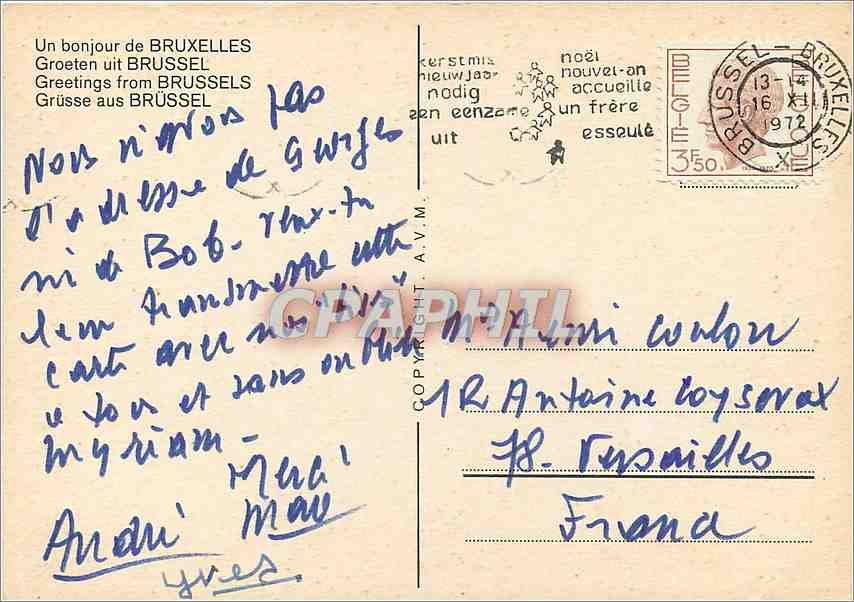 Un bonjour de BRUXELLES
Groeten uit BRUSSEL
Greetings from BRUSSELS
Grüsse aus BRÜSSEL
Nous n'avons pas
l'adresse de Georges
ni de Bob. veux-tu
leur transmettre cette
carte avec nos
à tous et sans oublier
Myriam -
Merci
André Max
Yves
COPYRIGHT. A.V.M.
kerstmis
nieuwjaar
nodig
een eenzame
uit
noël
nouvel-an
accueille
un frère
esseulé
BELGIE BELGIQUE
3F50
BRUSSEL - BRUXELLES
13-14
16 XII
1972
X
CPAPHIL
Mr Henri Coulon
1R Antoine Coysevox
78. Versailles
France